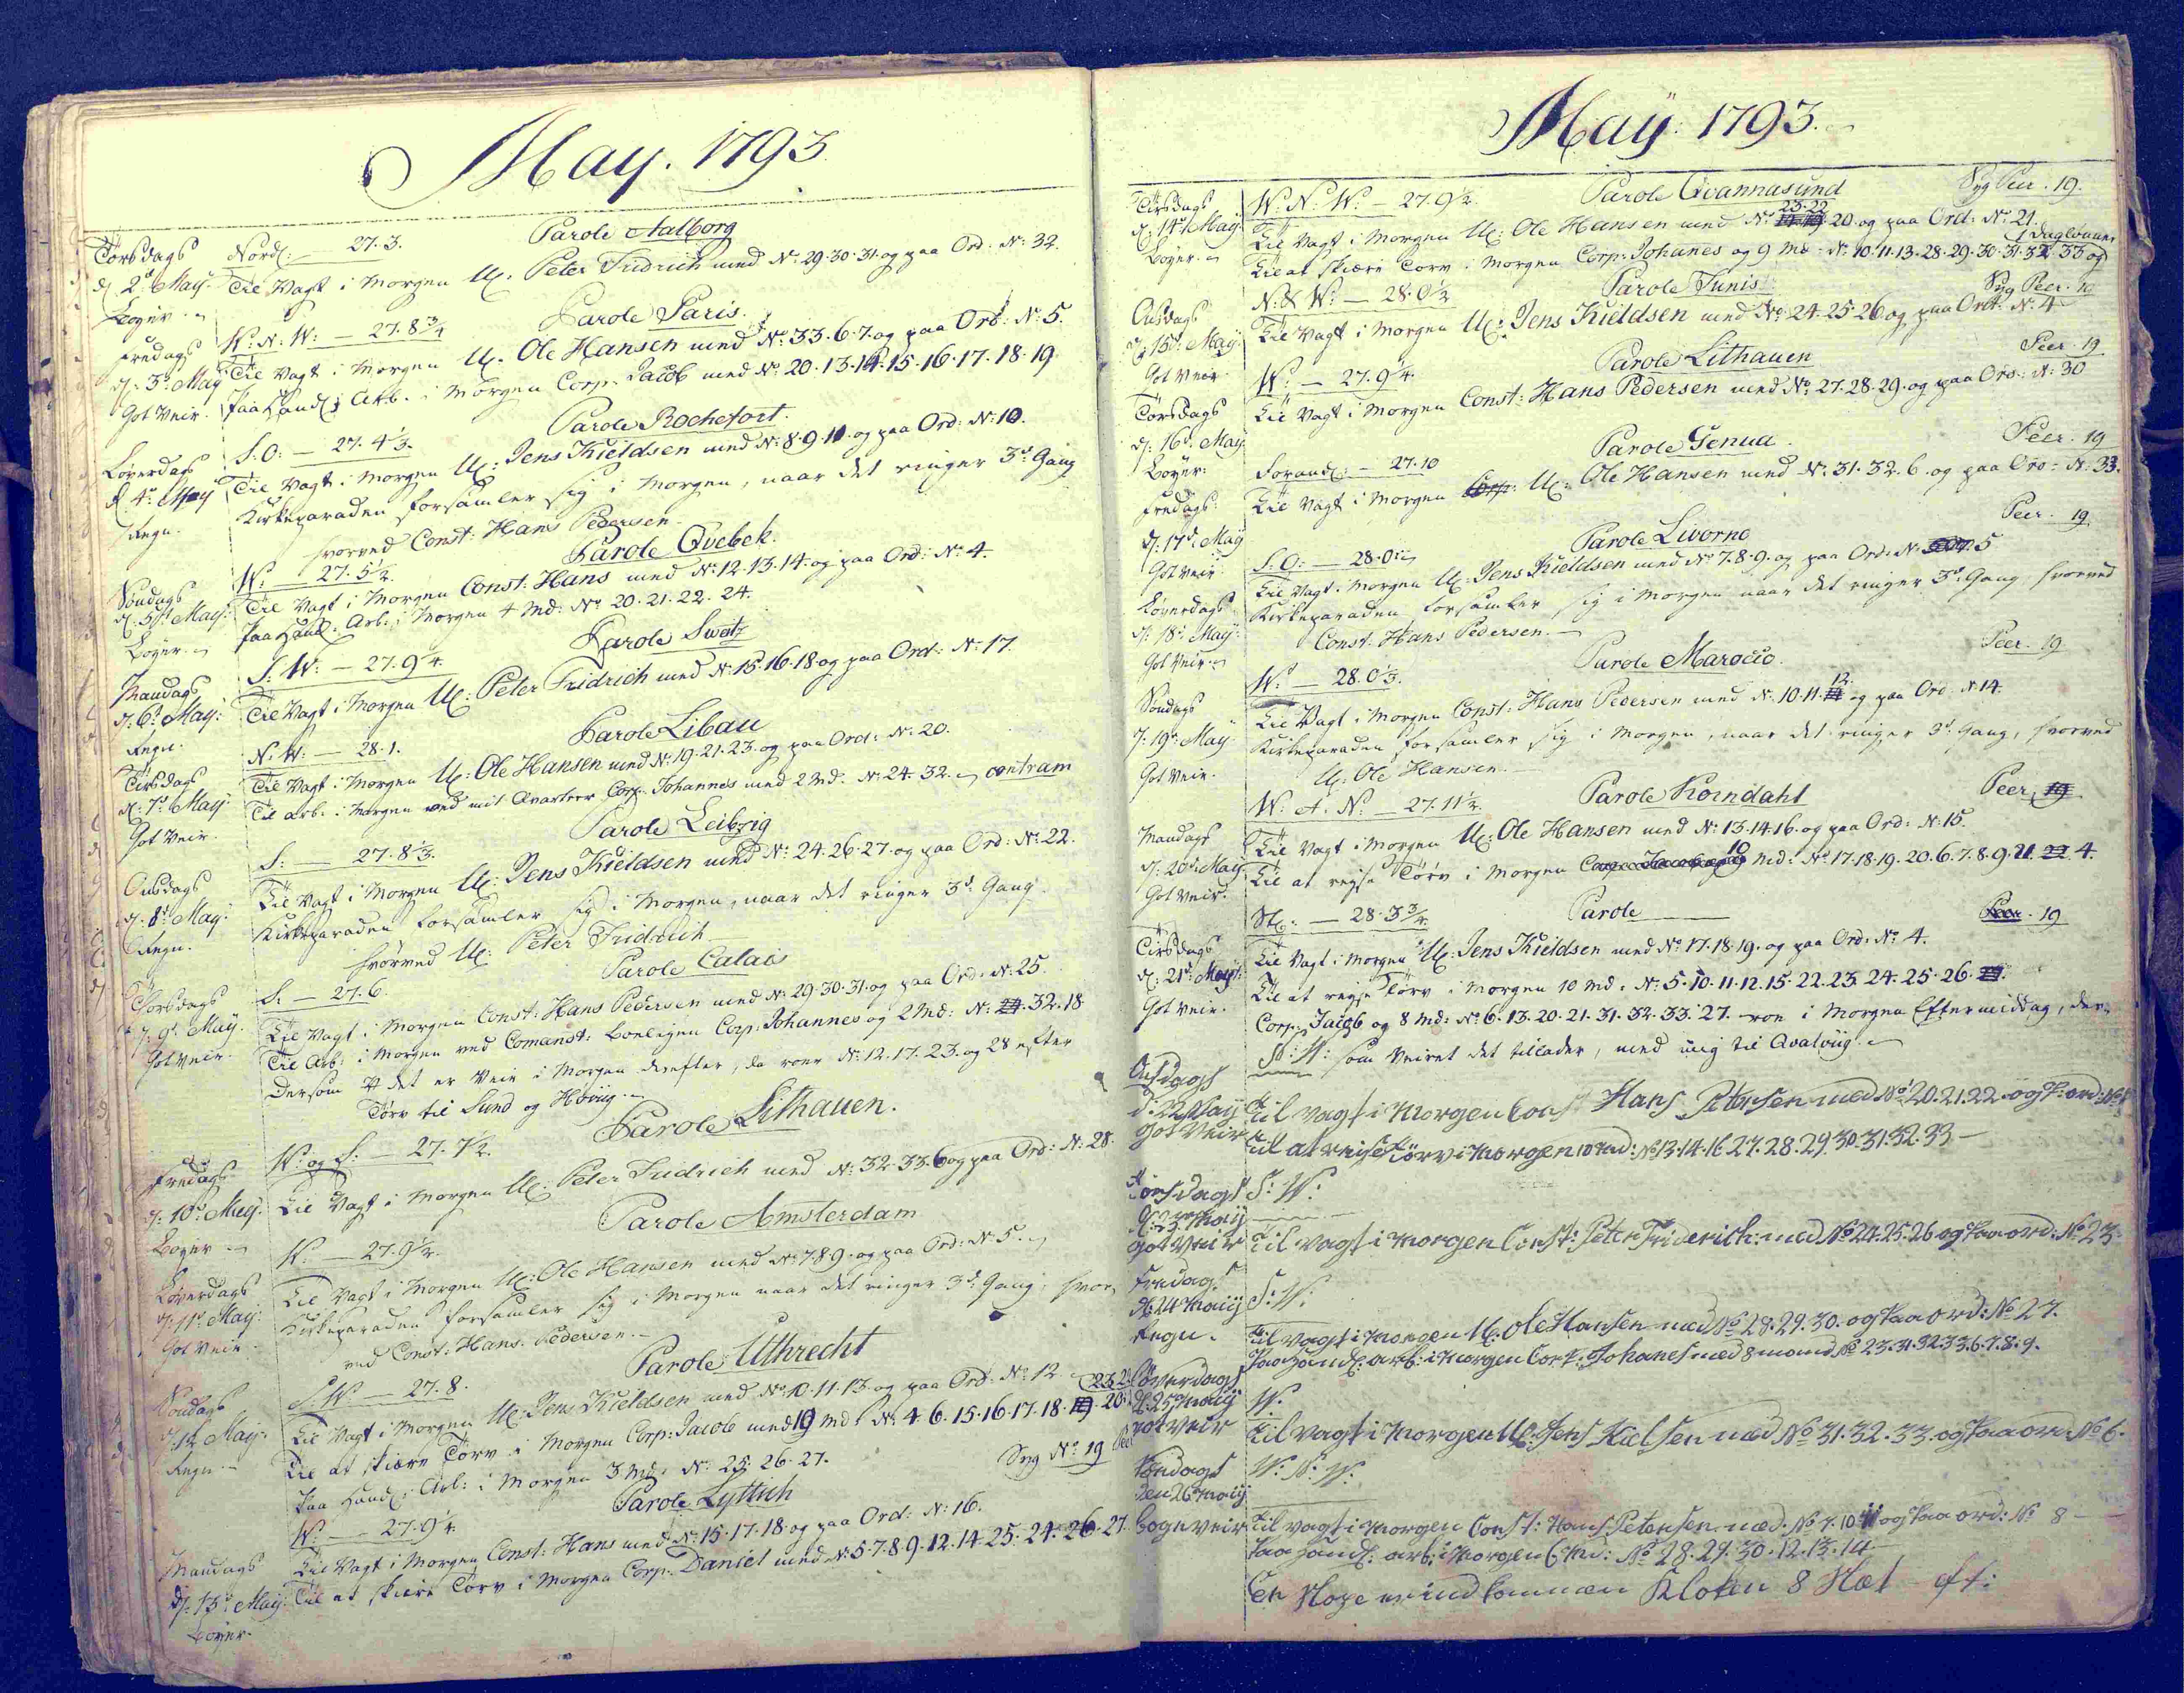 May. 1793
Torsdags Nord: — 27. 3. Parole Aalborg
d 2d May Til Vagt i Morgen U: Peter Fridrich med No 29. 30. 31. og paa Ord: No: 32.
Bøyer.
Fredags W: N: W: — 27. 8 3/4 Parole Paris.
d: 3d May Til Vagt i Morgen U: Ole Hansen med No: 33. 6. 7. og paa Ord: No: 5.
Got Veir. Paa Hand: Arb: i Morgen Corp: Jacob med No: 20. 13. 14. 15. 16. 17. 18. 19.
Løverdags S: O: — 27. 4 1/3. Parole Rochefort.
d. 4d May Til Vagt i Morgen U: Jens Kieldsen med No: 8. 9. 11. og paa Ord: No: 10.
Regn. Kirkeparaden forsamler sig i Morgen, naar det ringer 3d Gang
hvorved Const: Hans Pedersen
Søndags W: — 27. 5 1/2. Parole Qvebek.
d: 5d May: Til Vagt i Morgen Const: Hans med No: 12. 13. 14. og paa Ord: No: 4.
Bøyer. Paa Hand: Arb: i Morgen 4 Md: No 20. 21. 22. 24.
Mandags S: W: — 27. 9 1/4. Parole Swatz
d: 6d May: Til Vagt i Morgen U: Peter Fridrich med No: 15. 16. 18. og paa Ord: No: 17.
Regn.
Tirsdags N: W: — 28. 1. Parole Libau
d: 7d May: Til Vagt i Morgen U: Ole Hansen med No: 19. 21. 23. og paa Ord: No: 20.
Got Veir. Til Arb: i Morgen ved mit Qvarteer Corp: Johannes med 2 Md. No: 24. 32.
Onsdags S: — 27. 8 1/3. Parole Leibzig
d: 8d May: Til Vagt i Morgen U: Jens Kieldsen med No: 24. 26. 27. og paa Ord: No: 22.
Regn. Kirkeparaden forsamler sig i Morgen, naar det ringer 3d Gang.
hvorved U: Peter Fridrich
Torsdags S: — 27. 6. Parole Calais
d: 9d May. Til Vagt i Morgen Const: Hans Pedersen med No: 29. 30. 31. og paa Ord: No: 25.
Got Veir. Til Arb: i Morgen ved Comanst: boeligen Corp: Johannes og 2 Md: No: 32. 18
Dersom det er Veir i Morgen derefter, da roer No: 12. 17. 23. og 28 efter
Tørv til Sund og Høviig
Fredags W: og S: — 27. 7 1/2. Parole Lithauen.
d: 10d May. Til Vagt i Morgen U: Peter Fridrich med No: 32. 33. 6 og paa Ord: No: 28.
Bøyer
Løverdags W: — 27. 9 1/2. Parole Amsterdam
d: 11d May: Til Vagt i Morgen U: Ole Hansen med No: 7. 8. 9. og paa Ord: No: 5.
Got Veir. Kirkeparaden forsamler sig i Morgen naar det ringer 3d Gang, hvor
ved Const: Hans Pedersen.
Søndags S. W — 27. 8. Parole Uthrecht
d: 12 May: Til Vagt i Morgen U: Jens Kieldsen med No: 10. 11. 13. og paa Ord: No: 12
Regn Til at skiære Tørv i Morgen Corp: Jacob med 10 Md: No: 4. 6. 15. 16. 17. 18. 19. 20.
Paa Hand: Arb: i Morgen 3 Md: No: 25. 26. 27. Syg No: 19
Mandags W: — 27. 9 1/4. Parole Lyttich
d: 13d May: Til Vagt i Morgen Const: Hans med No: 15. 17. 18. og paa Ord: No: 16.
Bøyer. Til at skiære Tørv i Morgen Corp: Daniel med No: 5. 7. 8. 9. 12. 14. 25. 24. 26. 27
May: 1793.
Tirsdags W: N: W: — 27. 9 1/2. Parole Qvannasund Syg Peer. 19.
d: 14d May: Til Vagt i Morgen U: Ole Hansen med No: 23. 22. 20 og paa Ord: No: 21.
Bøyer. Til at skiære Tørv i Morgen Corp: Johanes og 9 Md: No: 10. 11. 13. 28. 29. 30. 31. 32. 33 og
Onsdags N: & W: — 28. 0 1/2 Parole Tunis Syg Peer. 19
d: 15d: May: Til Vagt i Morgen U: Jens Kieldsen med No: 24. 25. 26 og paa Ord: No: 4
Got Veir.
Torsdags W: — 27. 9 1/4. Parole Lithauen Peer. 19
d: 16d. May Til Vagt i Morgen Const: Hans Pedersen med No: 27. 28. 29. og paa Ord: No: 30
Bøyer:
Fredags Sørand: — 27. 10 Parole Genua. Peer. 19
d: 17d: May Til Vagt i Morgen U: Ole Hansen med No: 31. 32. 6. og paa Ord: No: 33.
Got Veir
Løverdags S: O: — 28. 0 Parole Livorno Peer. 19
d: 18d May: Til Vagt i Morgen U: Jens Kieldsen med No 7. 8. 9. og paa Ord: No: 5
Got Veir Kirkeparaden forsamler sig i Morgen naar det ringer 3d Gang hvorved
Const: Hans Pedersen.
Søndags W: — 28. 0 1/3. Parole Marocco. Peer. 19
d: 19d May: Til Vagt i Morgen Const: Hans Pedersen med No: 10. 11. 12. og paa Ord: No 14.
Got Veir. Kirkeparaden forsamler sig i Morgen, naar det ringer 3d Gang, hvorved
U: Ole Hansen.
Mandags W: N: — 27. 11 1/2. Parole Korndahl Peer. 19
d: 20d May Til Vagt i Morgen U: Ole Hansen med No: 13. 14. 16. og paa Ord: No: 15.
Got Veir. Til at reyse Tørv i Morgen 10 Md: No: 17. 18. 19. 20. 6. 7. 8. 9. 21. 4.
Tirsdags St: — 28. 3 3/4 Parole Peer. 19
d: 21d: May: Til Vagt i Morgen U: Jens Kieldsen med No: 17. 18. 19. og paa Ord: No: 4.
Got Veir. Til at reyse Tørv i Morgen 10 Md: No: 5. 10. 11. 12. 15. 22. 23. 24. 25. 26.
Corp: Jacob og 8 Md: No: 6. 13. 20. 21. 31. 32. 33. 27. roe i Morgen Eftermiddag, der
som Veiret det tillader, med mig til Qvalviig.
Onsdags
d: 22 May Til Vagt i Morgen Const Hans Petersen med No 20. 21. 22. og P: ord: No
got Veir Til at reise Tørv i Morgen 10 Md: No 13. 14. 16. 27. 28. 29. 30. 31. 32. 33 —
Torsdags S: W:
d: 23 Maij
got Veir Til Vagt i Morgen Const: Peter Friderich: med No 24. 25. 26 og Paa ord: No 23.
Fredag. S: W:
d: 24 Maij
Regn. Til Vagt i Morgen U: Ole Hansen med No 28. 29. 30. og Paa ord: No 27.
Paa Hand: arb: i Morgen Corp: Johanes med 8 mand No 23. 31. 32. 33. 6. 7. 8. 9.
Løverdags W:
d: 25 Maij
got Veir Til Vagt i Morgen U: Jens Kielsen med No 31. 32. 33. og Paa ord: No 6.
Søndags W: N: W:
den 26 Maij
Til Vagt i Morgen Const: Hans Petersen med. No 7. 10. 11 og Paa ord: No 8 —
Paa Hand: arb: i Morgen 6 Md: No 28. 29. 30. 12. 13. 14
En Sloge er indkommen Kloken 8 Slæt